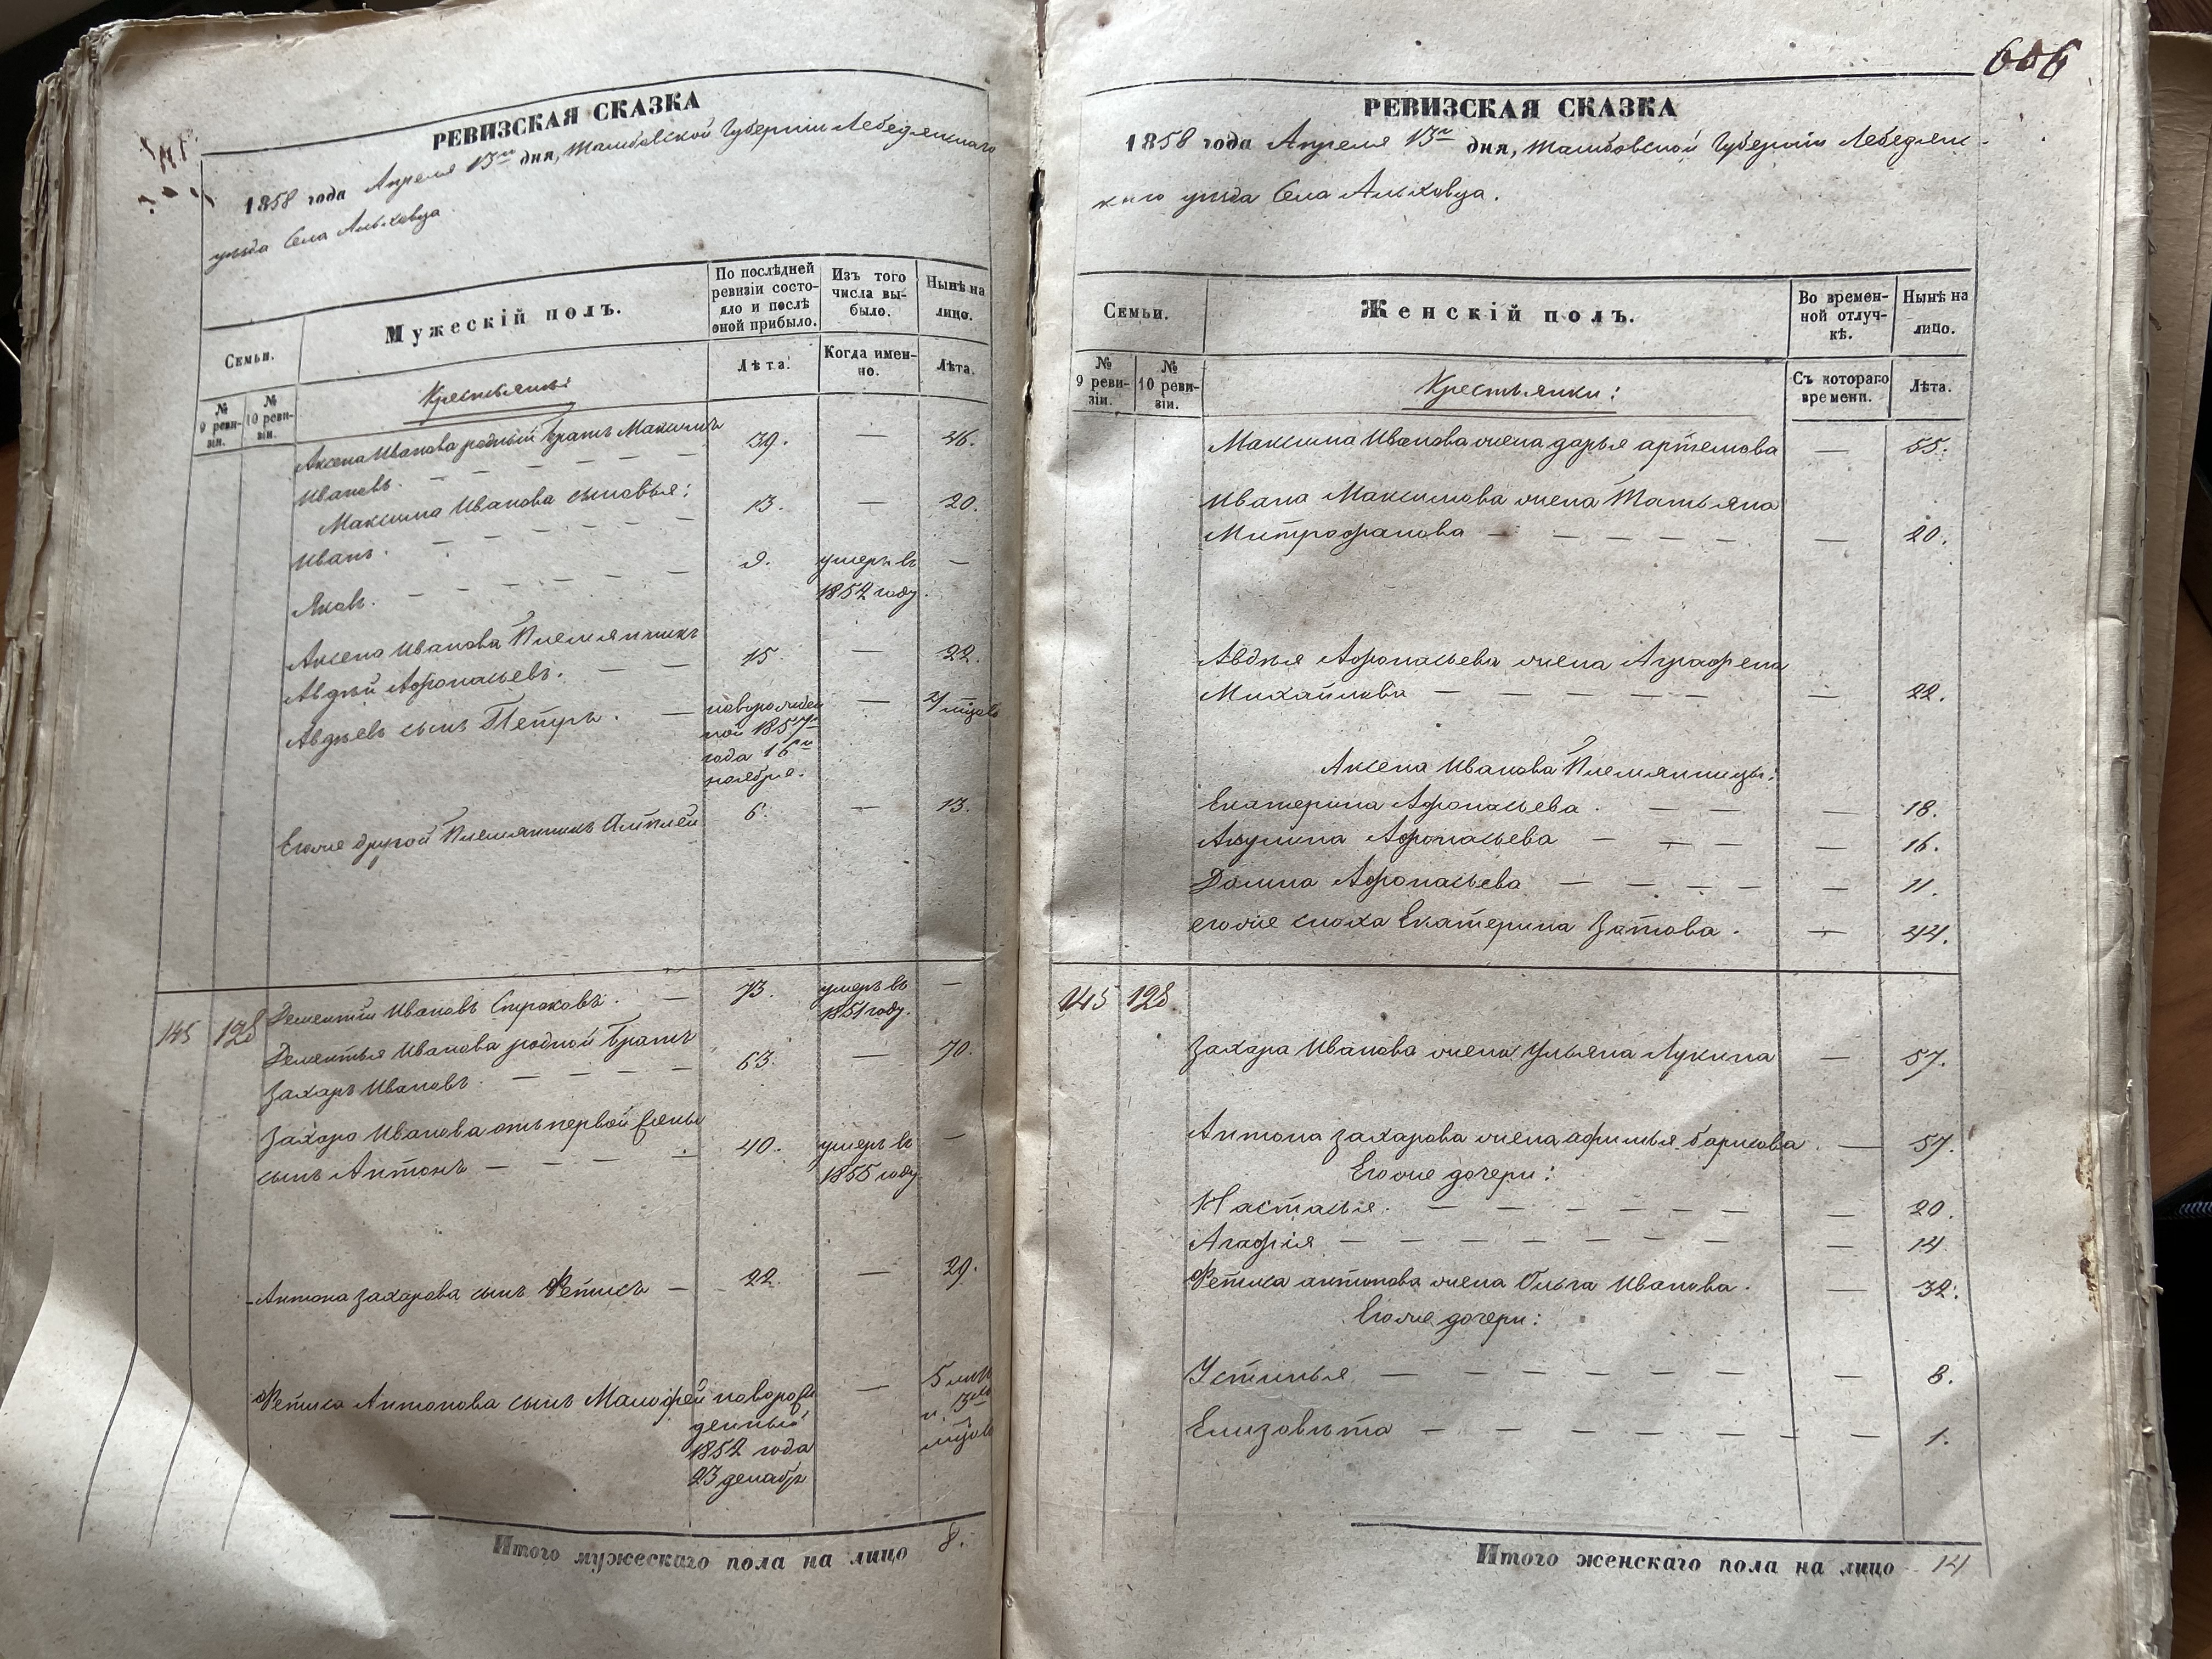 РЕВИЗСКАЯ СКАЗКА
1858 года Апреля 13го дня, Тамбовской Губерніи Лебедянскаго
уѣзда Села Альховца
Семьи.
Мужескій полъ.
По послѣдней ревизіи состояло и послѣ оной прибыло.
Изъ того числа выбыло.
Нынѣ на лицо.
№ 9 ревизіи.
№ 10 ревизіи.
Лѣта.
Когда именно.
Лѣта.
Крестьяне:
Аксена Иванова родный братъ Максимъ
Ивановъ. 39. — 46.
Максима Иванова сыновья:
Иванъ. 13. — 20.
Яковъ. 9. умеръ въ 1852 году. —
Аксена Иванова Племянникъ
Авдѣй Афонасьевъ. 15. — 22.
Авдѣевъ сынъ Петръ. новорожден
ной 1857го
года 16го
ноября.
Егоже другой Племянникъ 6. — 13.
145 128 Дементий Ивановъ 73. умеръ въ 1851 году. —
Дементья Иванова родной братъ
Захаръ Ивановъ. 63. — 70.
Захара Иванова отъ первой жены
сынъ Антонъ 40. умеръ въ 1855 году —
Антона Захарова сынъ Фетисъ 22. — 29.
Фетиса Антонова сынъ Малофей новорож
денный
1852 года
23 декабр
— 5 лѣтъ
и 3
мѣсяца
Итого мужескаго пола на лицо 8.
606
РЕВИЗСКАЯ СКАЗКА
1858 года Апреля 13го дня, Тамбовской Губерніи Лебедянс-
каго уѣзда Села Альховца.
Семьи.
Женскій полъ.
Во временной отлучкѣ.
Нынѣ на лицо.
№ 9 ревизіи.
№ 10 ревизіи.
Съ котораго времени.
Лѣта.
Крестьянки:
Максима Иванова жена дарья артемова — 55.
Ивана Максимова жена Татьяна
Митрофанова — 20.
Авдѣя Афонасьева жена Аграфена
Михайлова — 22.
Аксена Иванова Племянницы:
Екатерина Афонасьева — 18.
Акулина Афонасьева — 16.
Домна Афонасьева — 11.
егоже сноха Екатерина — 44.
145 128
Захара Иванова жена Ульяна Лукина — 57.
Антона Захарова жена афимья борисова — 57.
Егоже дочери:
Настасья. — 20.
Агафія — 14
Фетиса антонова жена Ольга Иванова. — 32.
Егоже дочери:
Устинья — 8.
Елизовѣта — 1.
Итого женскаго пола на лицо 14